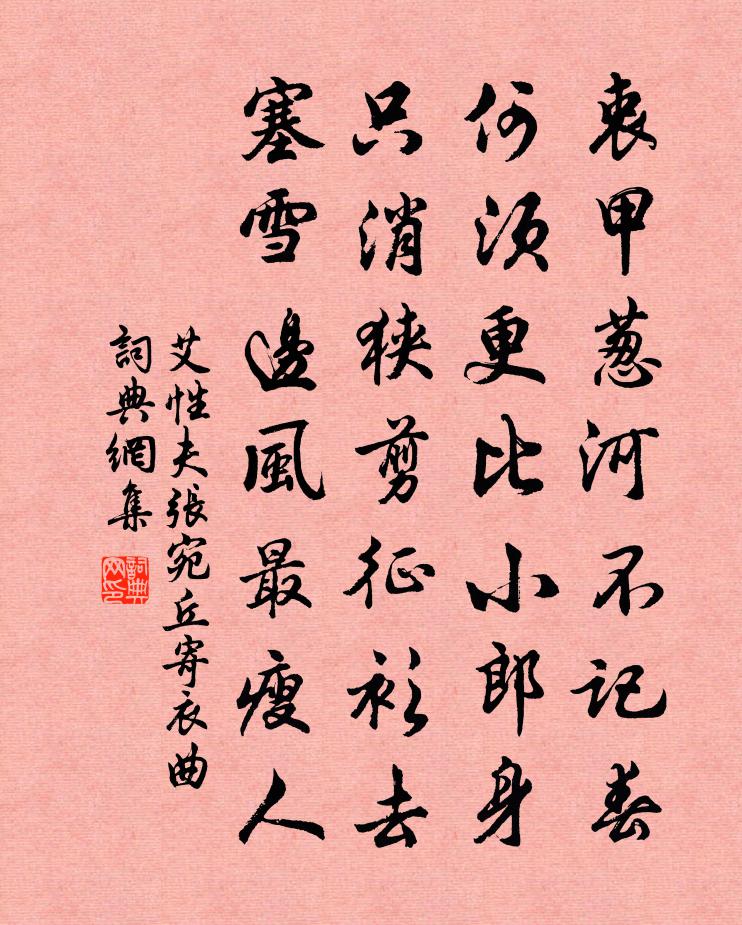 衷甲葱河不记春
何须更比小郎身
只消狭剪征衫去
塞雪边風最瘦人
艾性夫張宛丘寄衣曲
詞典網集
詞典网印